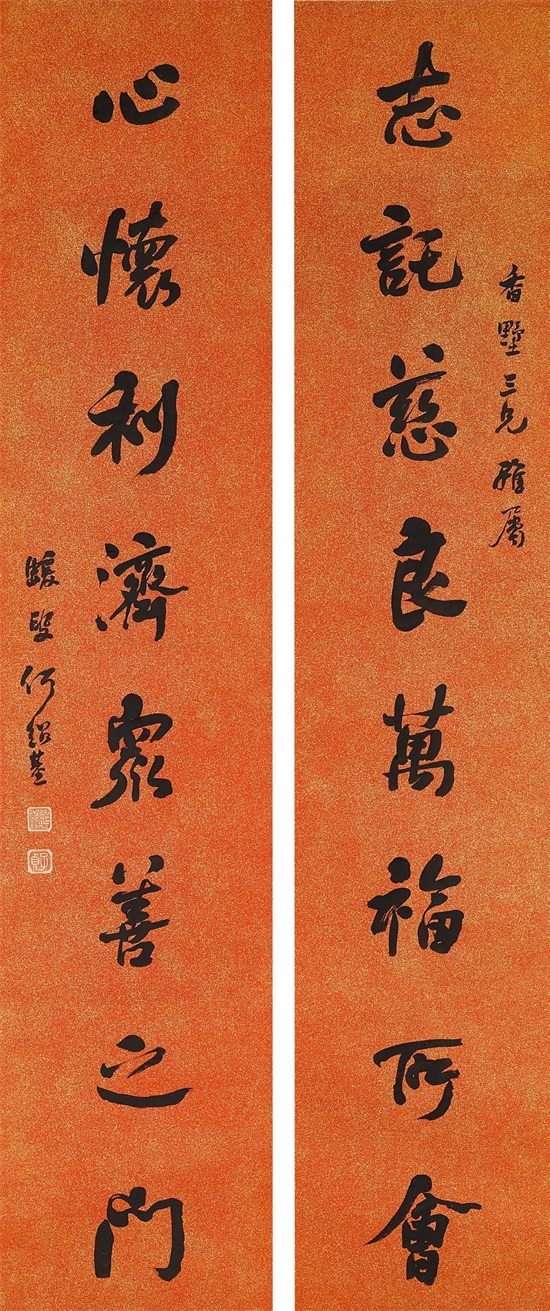 志託慈良萬福所會
香墅三兄雅屬
心懷利濟眾善之門
蝯叟何紹基